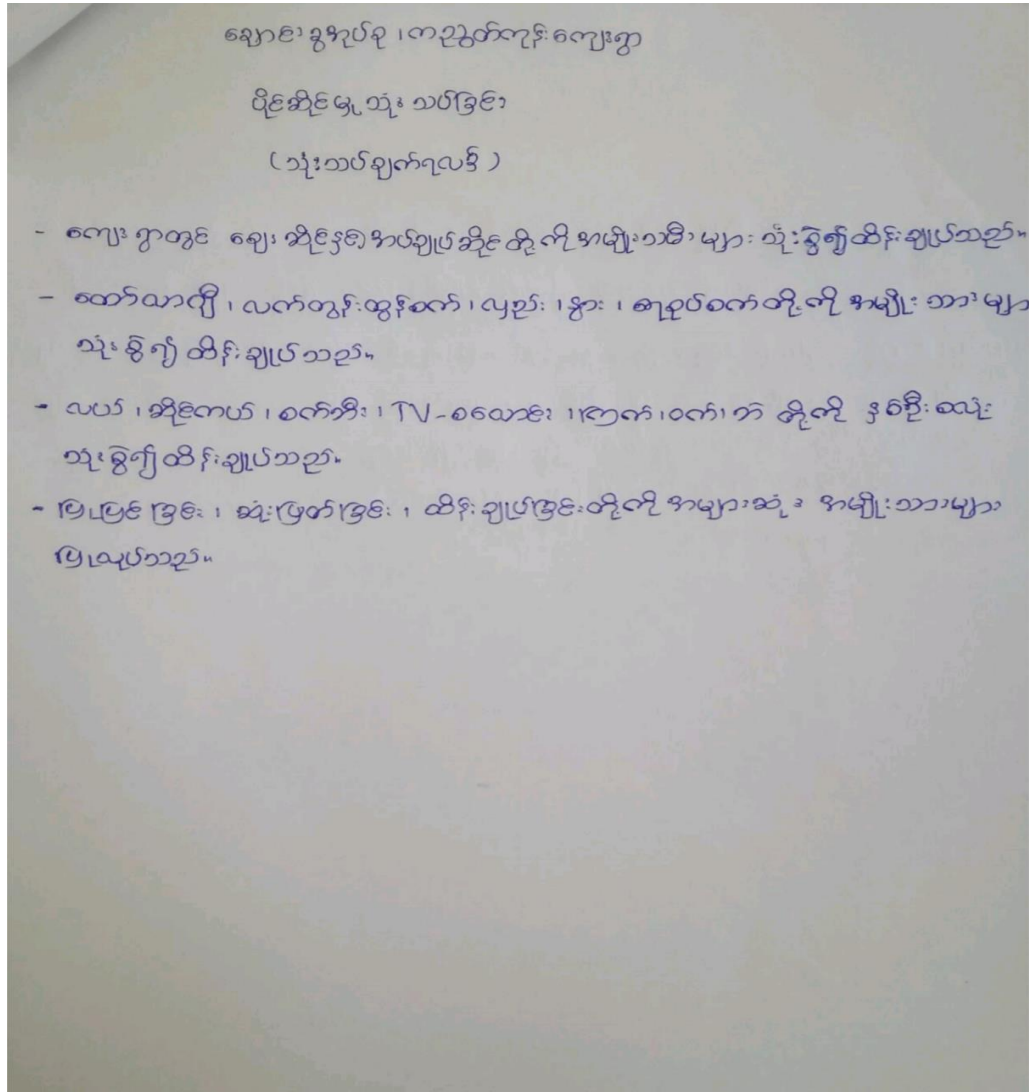 ချောင်းခွအုပ်စု ၊ ကညွတ်ကုန်းကျေးရွာ
ပိုင်ဆိုင်မှု သုံးသပ်ခြင်း
(သုံးသပ်ချက်ရလဒ်)
- ကျေးရွာတွင် ဈေးဆိုင်နှင့် အပ်ချုပ်ဆိုင်တို့ကို အမျိုးသမီးများ သုံးစွဲ၍ထိန်းချုပ်သည်။
- ထော်လာဂျီ ၊ လက်တွန်းထွန်စက် ၊ လှည်း ၊ နွား ၊ ရေစုပ်စက် တို့ကို အမျိုးသားများ
သုံးစွဲ၍ ထိန်းချုပ်သည်။
- လယ် ၊ ဆိုင်ကယ် ၊ စက်ဘီး ၊ TV-စလောင်း ၊ ကြက် ၊ ဝက် ၊ ဘဲ တို့ကို နှစ်ဦးစလုံး
သုံးစွဲ၍ထိန်းချုပ်သည်။
- ပြုပြင်ခြင်း ၊ ဆုံးဖြတ်ခြင်း ၊ ထိန်းချုပ်ခြင်းတို့ကို အများဆုံး အမျိုးသားများ
ပြုလုပ်သည်။